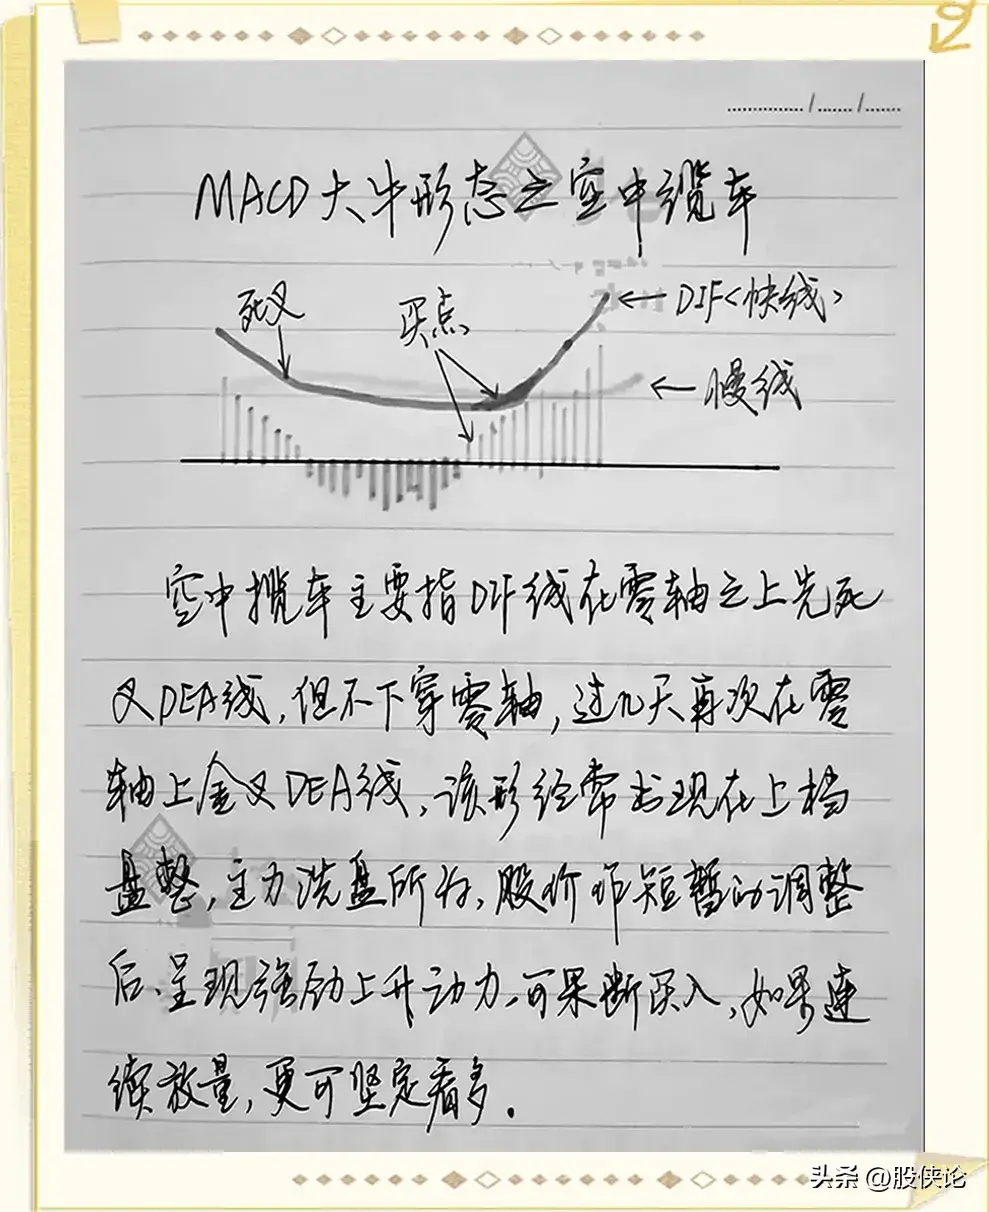 MACD大牛形态之空中缆车
死叉
买点
DIF<快线>
慢线
空中揽车主要指DIF线在零轴之上先死
叉DEA线,但不下穿零轴,过几天再次在零
轴上金叉DEA线,该形经常出现在上档
盘整,主力洗盘所为,股价作短暂的调整
后、呈现强劲上升动力,可果断买入,如果连
续放量,更可坚定看多.
头条 @股侠论